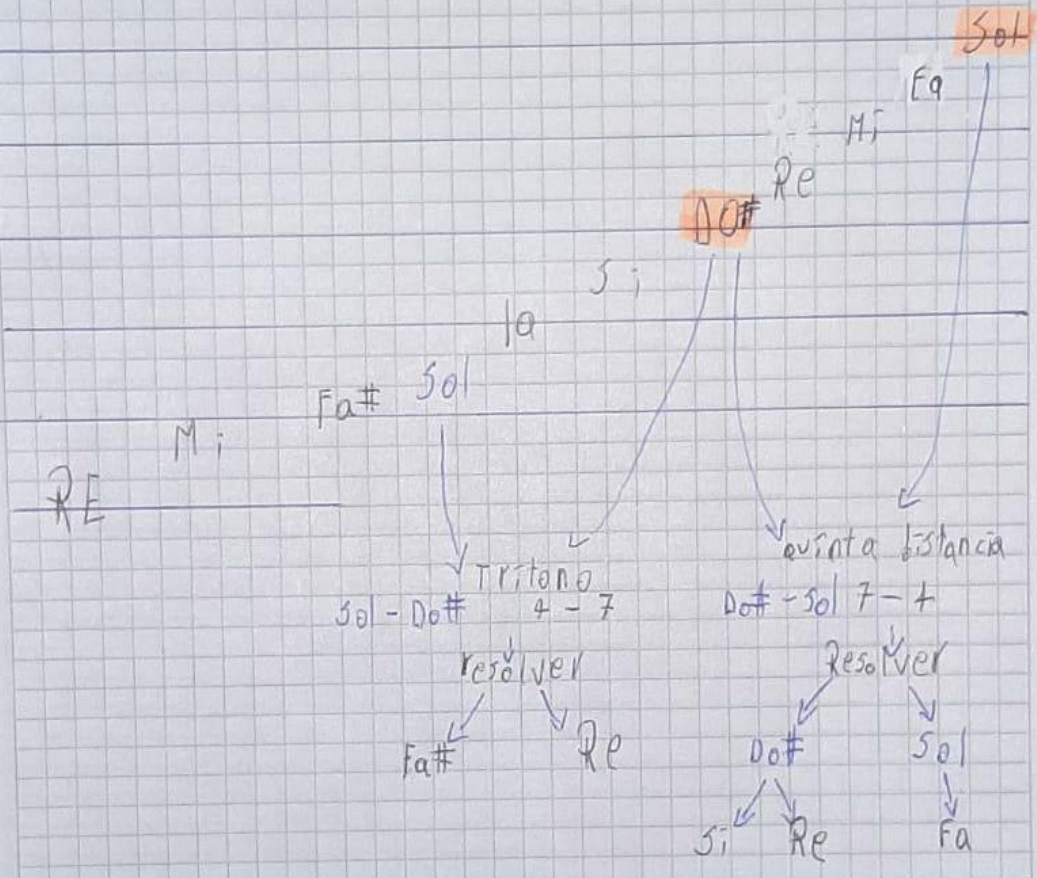 Sol
Fa
Mi
Re
DO#
Si
la
Sol
Fa#
Mi
RE
Tritono
Sol - Do# 4 - 7
resolver
Fa# Re
quinta distancia
Do# - Sol 7 - 4
Resolver
Do# Sol
Si Re Fa